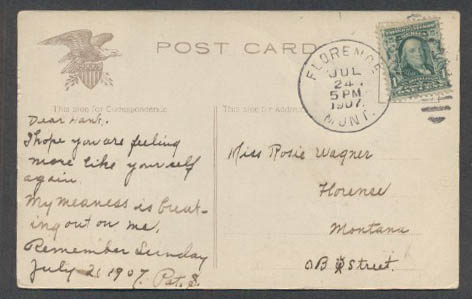 POST CARD
This side for Correspondence
This side for Address
FLORENCE
JUL
24
5 PM
1907
MONT.
Dear Hank.
I hope you are feeling
more like yourself
again.
My meaness is break-
ing out on me.
Remember Sunday
July 21 1907. Pat. S.
Miss Rosie Wagner
Florence
Montana
Street.